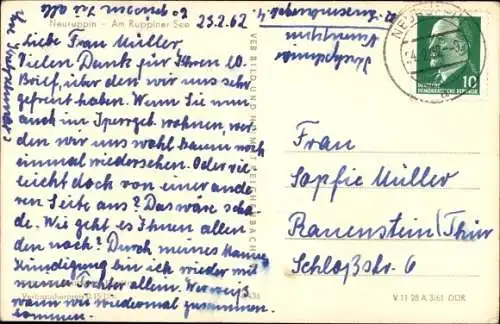 Neuruppin - Am Ruppiner See
23.2.62
Liebe Frau Müller,
Vielen Dank für Ihren lb.
Brief, über den wir uns sehr
gefreut haben. Wenn Sie nun
auch im Sperrgeb. wohnen, wer
den wir uns wohl kaum noch
einmal wiedersehen. Oder viel
leicht doch von einer ande
ren Seite aus? Das wäre schö
de. Wie geht es Ihnen allen
den noch? Durch meines Mannes
Kündigung bin ich wieder mit
meiner Tochter allein. Wer weiß,
wann wir wiedermal zusammen
kommen.
VEB BILD UND HEIMAT REICHENBACH
Neuruppin
10
DEUTSCHE
DEMOKRATISCHE REPUBLIK
Frau
Sophie Müller
Rauenstein/Thür
Schloßstr. 6
V 11 28 A 3/61 DDR